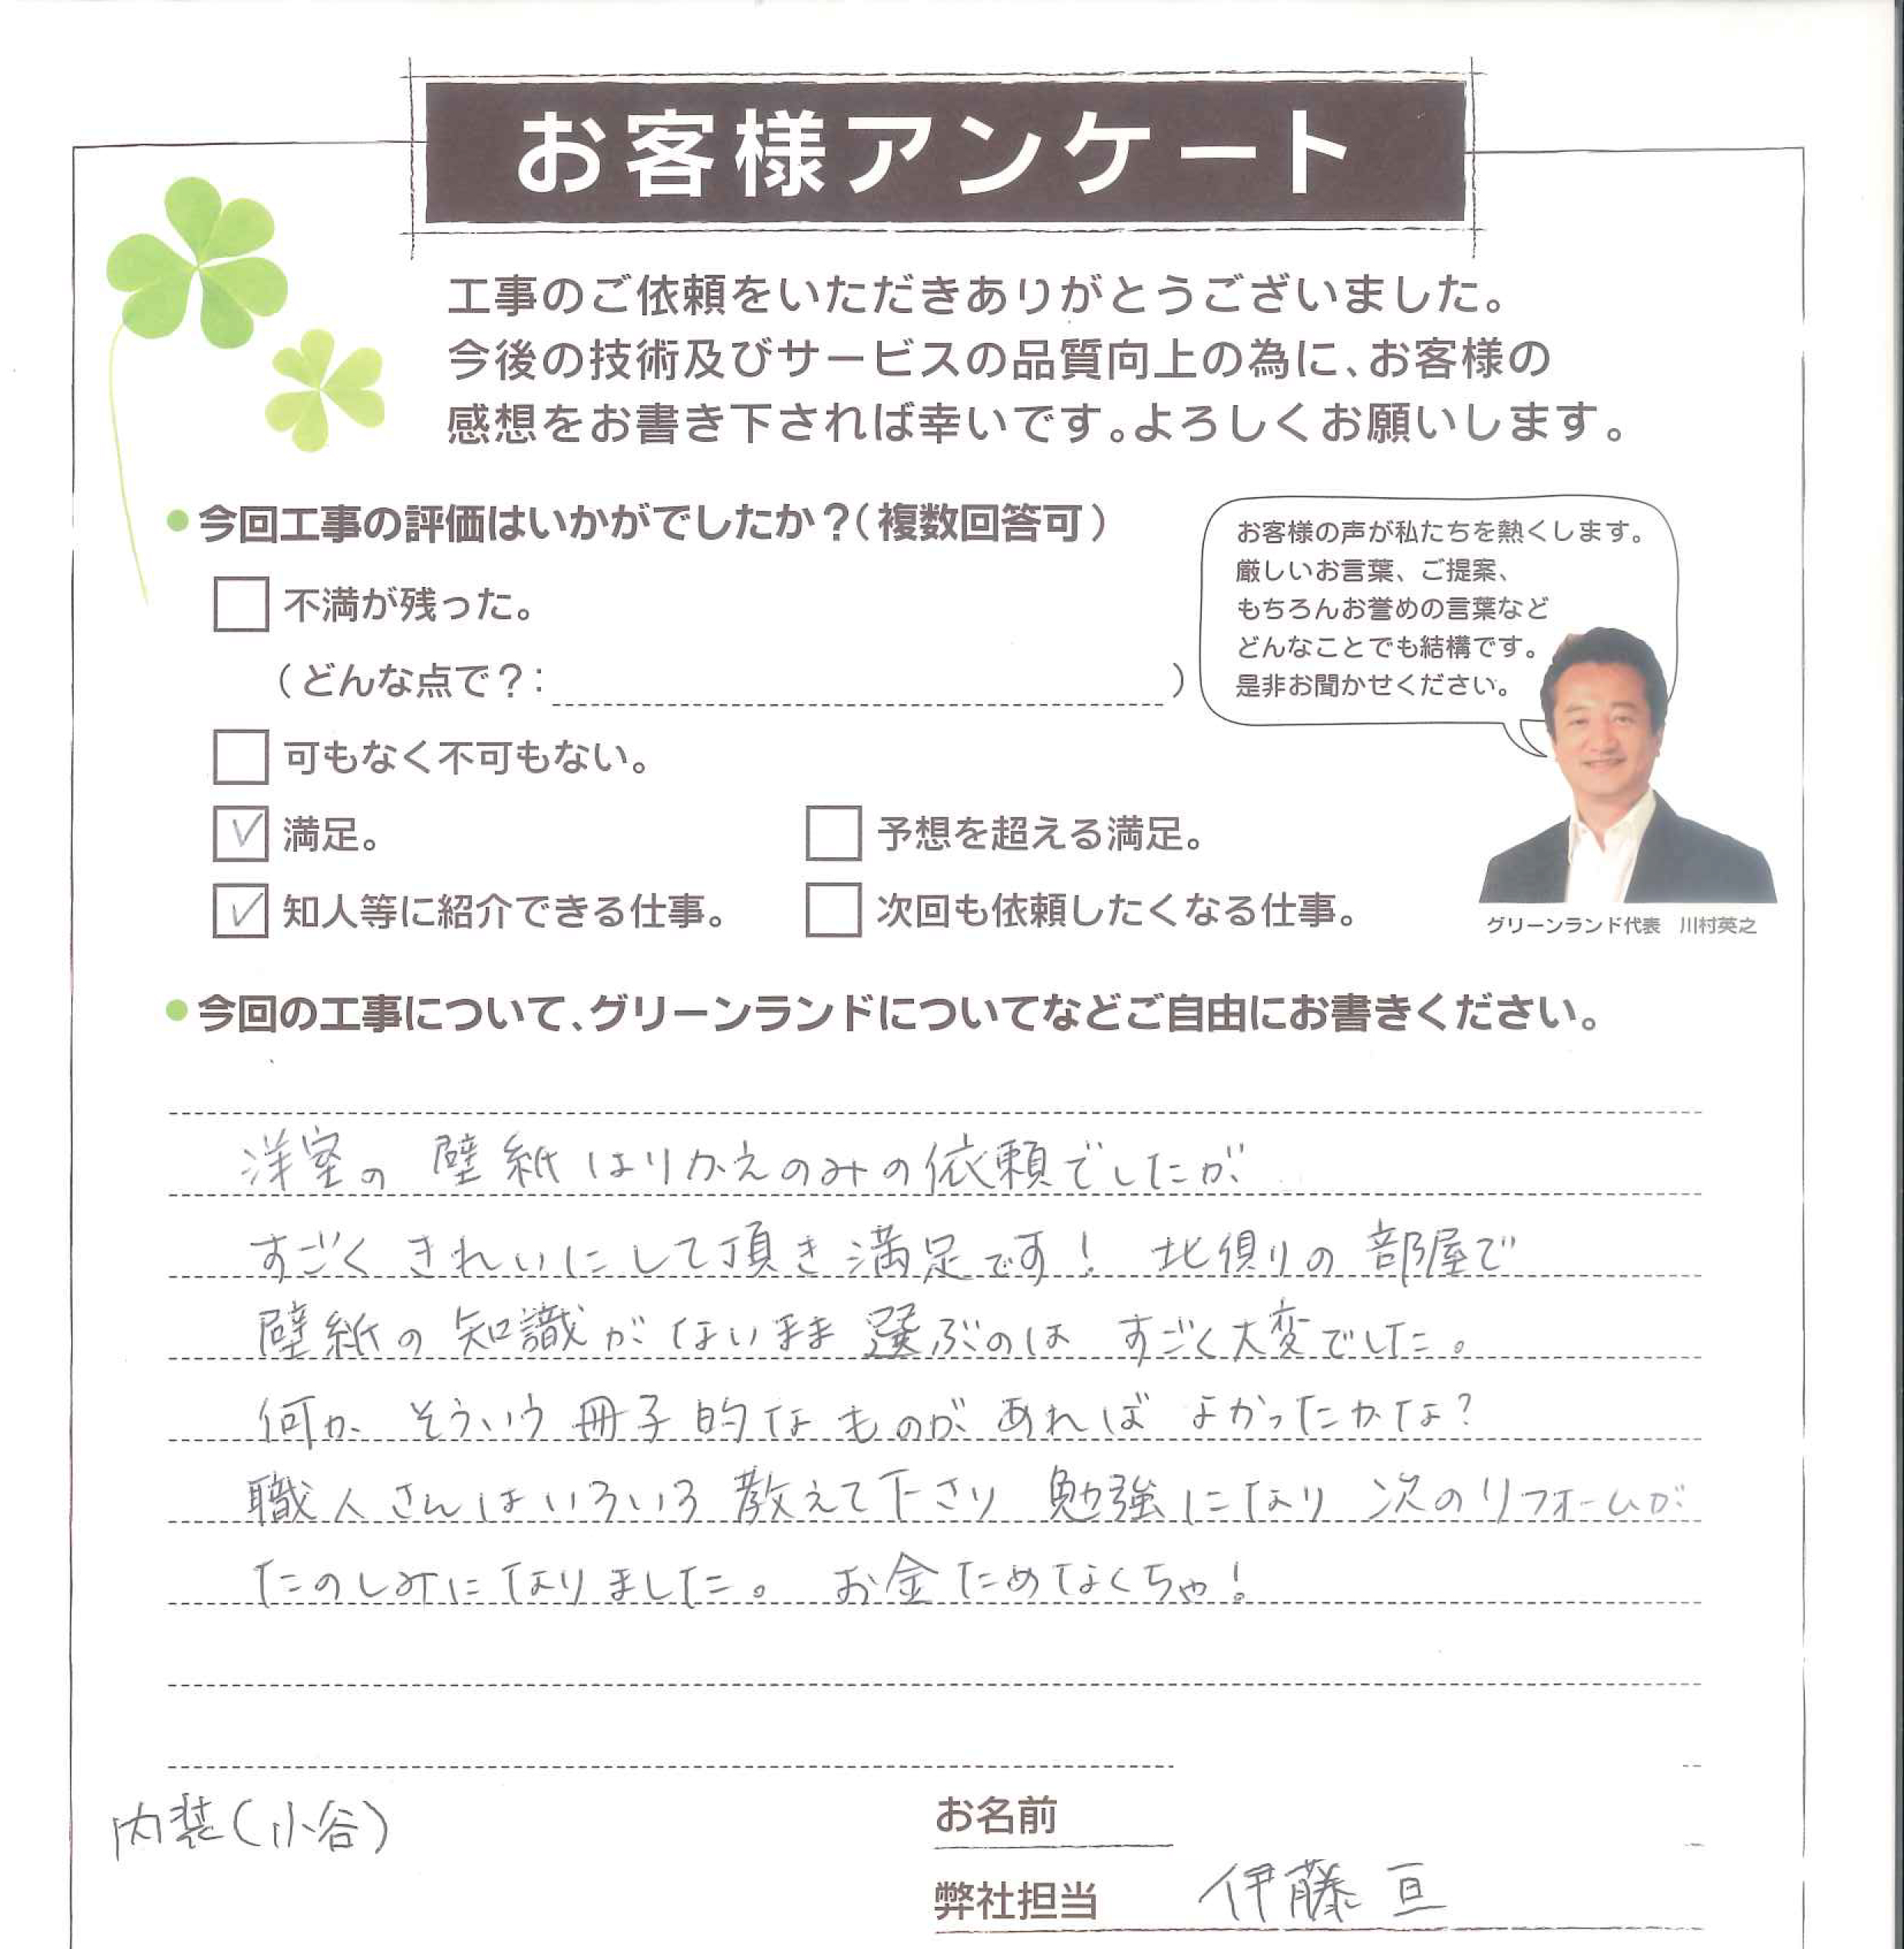 お客様アンケート
工事のご依頼をいただきありがとうございました。
今後の技術及びサービスの品質向上の為に、お客様の
感想をお書き下されば幸いです。よろしくお願いします。
●今回工事の評価はいかがでしたか？（複数回答可）
不満が残った。
（どんな点で？：　）
可もなく不可もない。
満足。
予想を超える満足。
知人等に紹介できる仕事。
次回も依頼したくなる仕事。
お客様の声が私たちを熱くします。
厳しいお言葉、ご提案、
もちろんお誉めの言葉など
どんなことでも結構です。
是非お聞かせください。
グリーンランド代表　川村英之
●今回の工事について、グリーンランドについてなどご自由にお書きください。
洋室の壁紙はりかえのみの依頼でしたが
すごくきれいにして頂き満足です！北側りの部屋で
壁紙の知識がないまま選ぶのはすごく大変でした。
何かそういう冊子的なものがあればよかったかな？
職人さんはいろいろ教えて下さり勉強になり次のリフォームが
たのしみになりました。お金ためなくちゃ！
内装（小谷）
お名前
弊社担当　伊藤亘